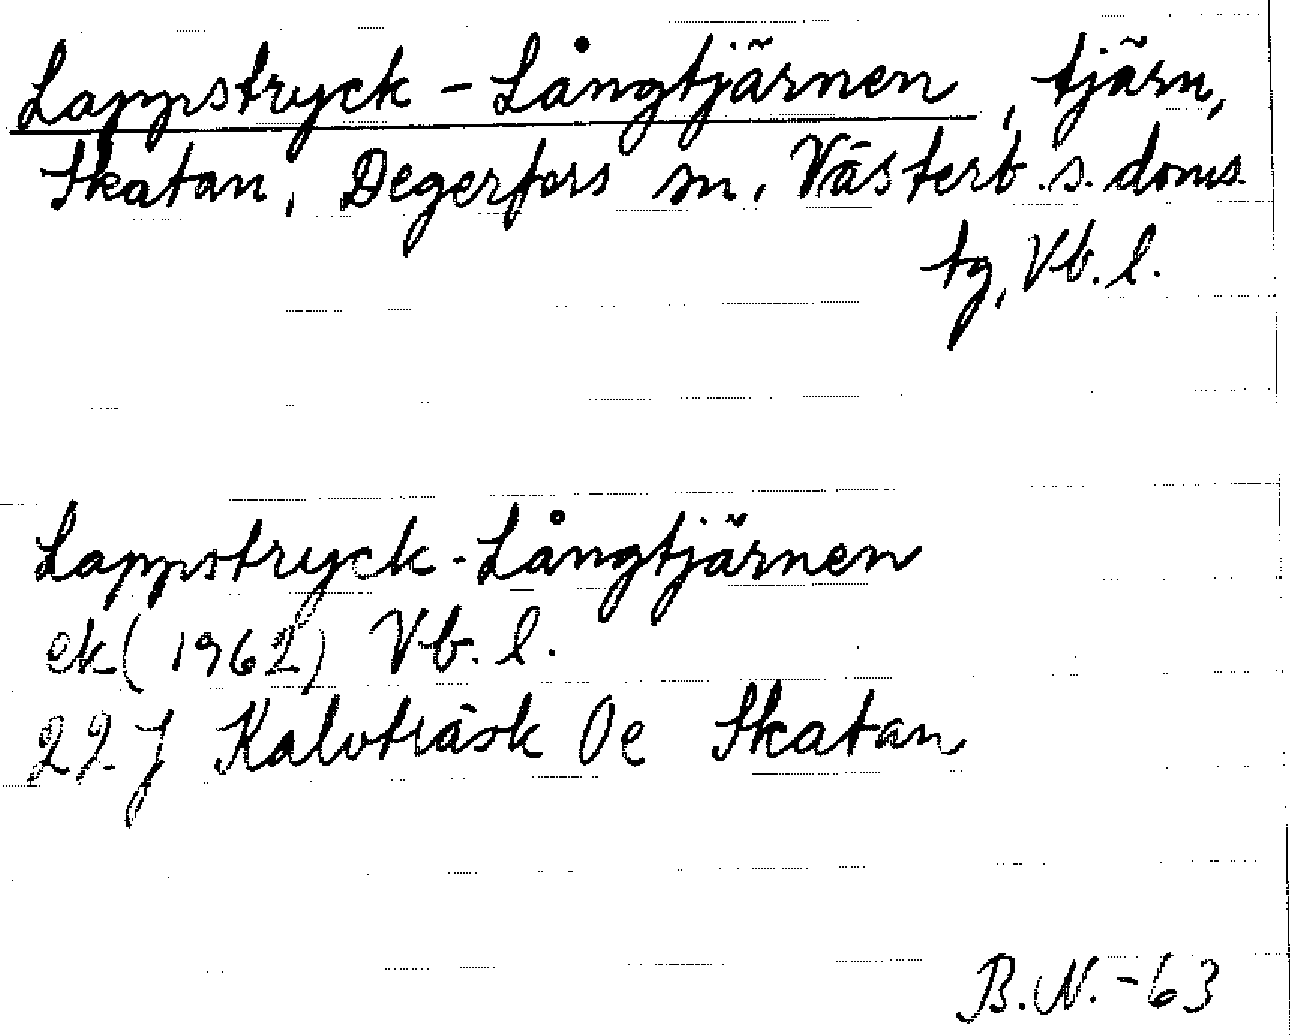 Lappstryck-Långtjärnen, tjärn,
Skatan, Degerfors sn, Västerb. s. doms.
tg, Vb. l.
Lappstryck-Långtjärnen
ek (1962) Vb. l.
22 J Kalvträsk 0e Skatan
B.N.-63